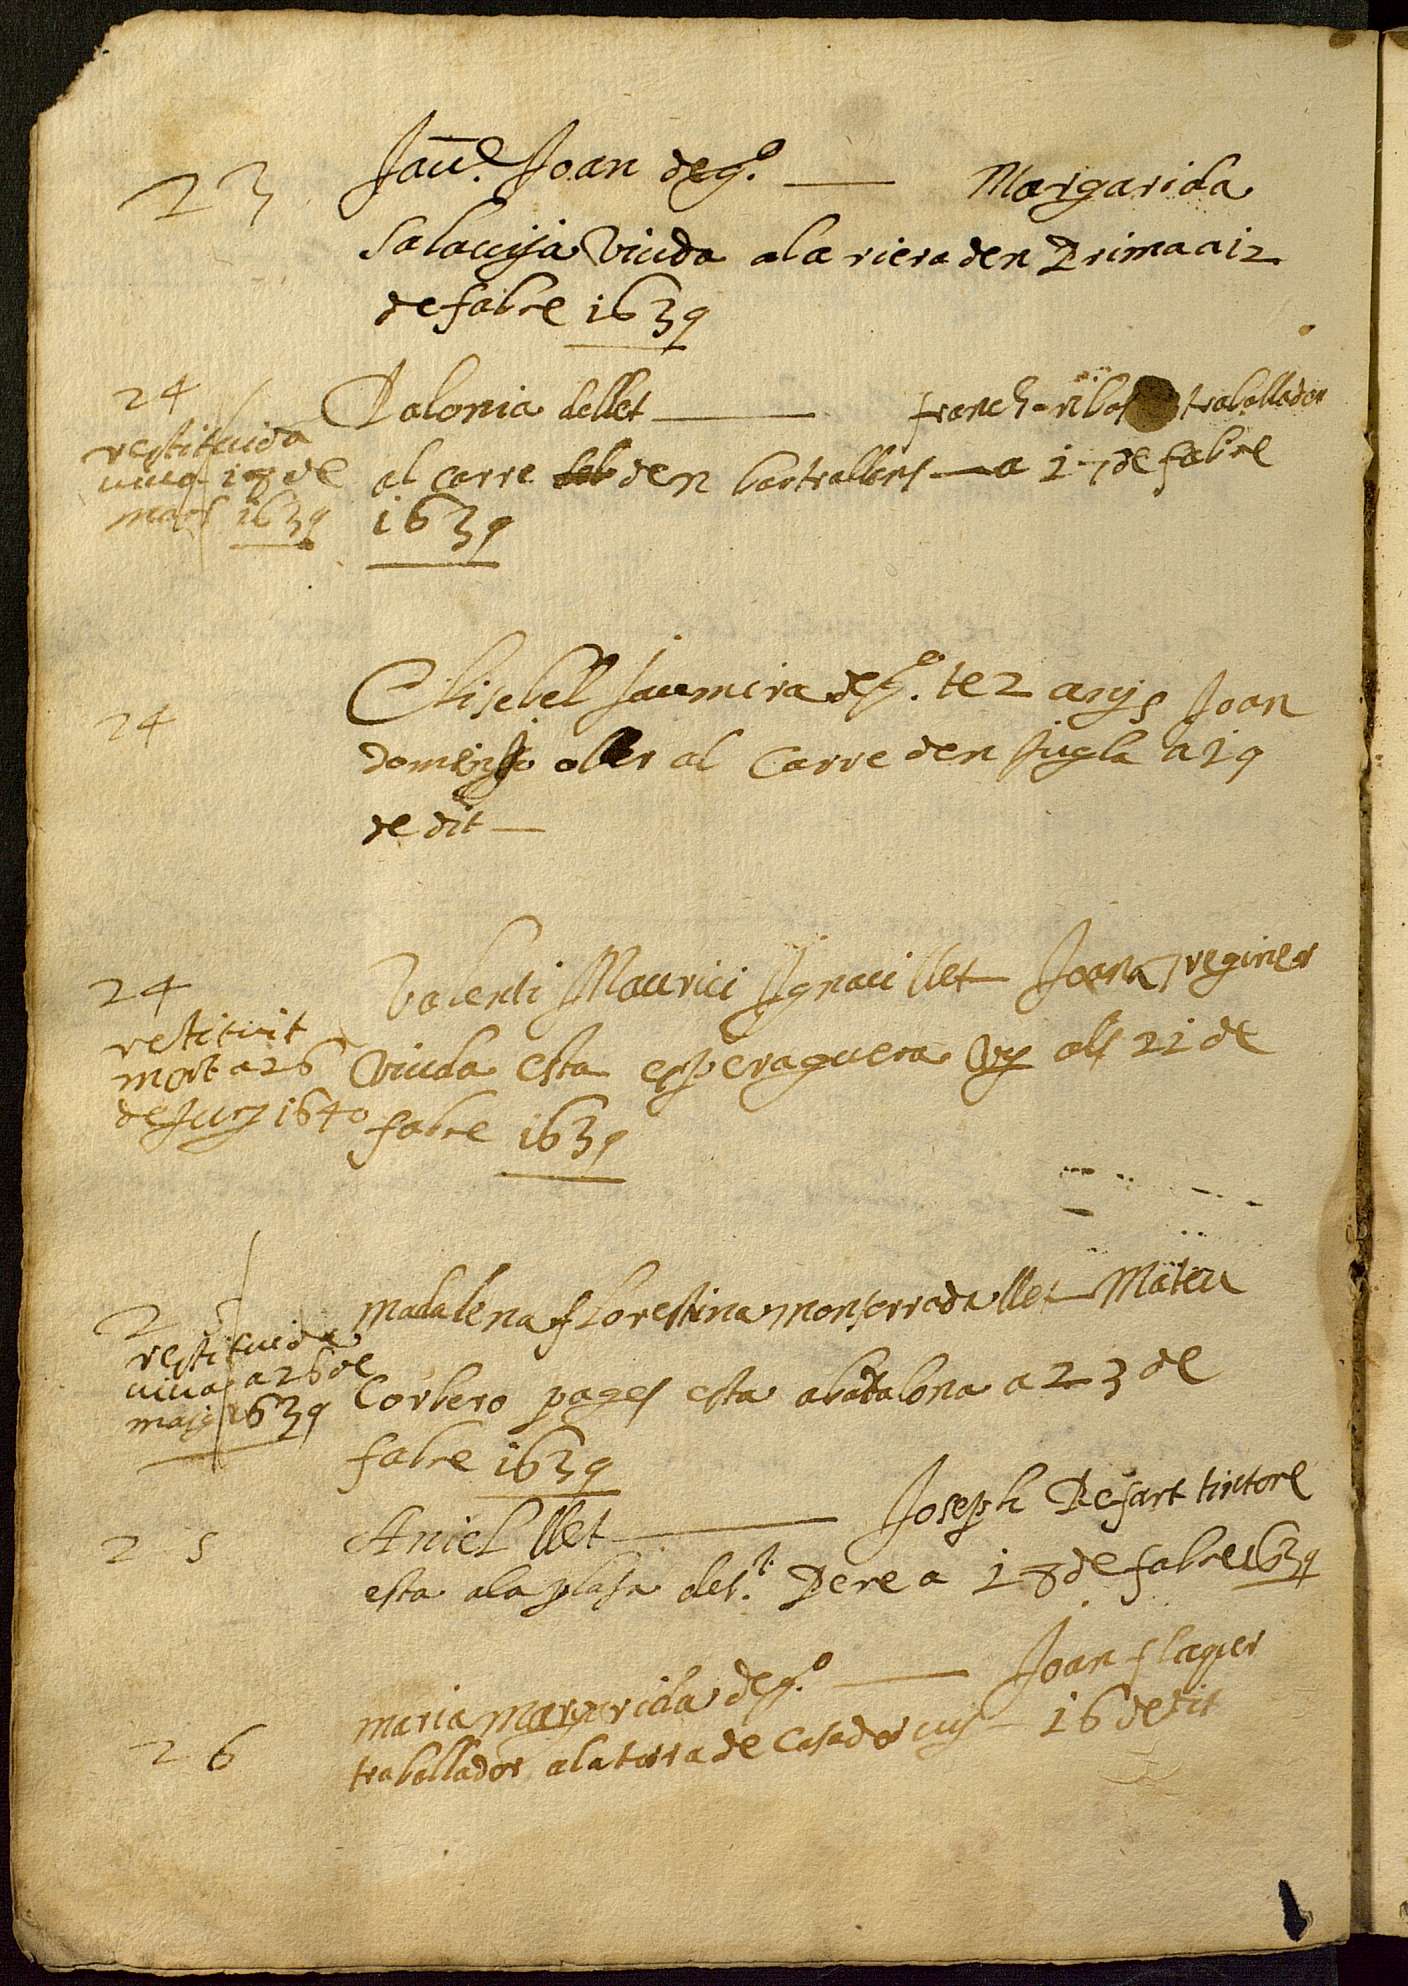 23
Jau.e Joan deg.o — Margarida
salavija viuda ala riera den Prim a a 12
de fabre 1639
24
restituida
viva 18 de
mars 1639
Palonia de llet — franch ribas traballador
al carre den bartrallans — a 17 de fabre
1639
24
Elisebel Jaumira deg.o te 2 anys Joan
domingo oller al Carre den Jugla a 19
de dit —
24
restituit
mort a 26
de Juny 1640
Valenti Maurici Ignaci llet Joana reginer
viuda esta esperaguera vy als 21 de
fabre 1639
25
restituida
viva a 26 de
maig 1639
Madalena florestina monserrada llet Mateu
Corbero pages esta abadalona a 23 de
fabre 1639
25
Aniel llet — Joseph Refart tintore
esta ala plasa de S.t Pere a 18 de fabre 1639
26
maria Margarida deg.o — Joan flaquer
traballador ala torra de Casador vuy 16 de dit